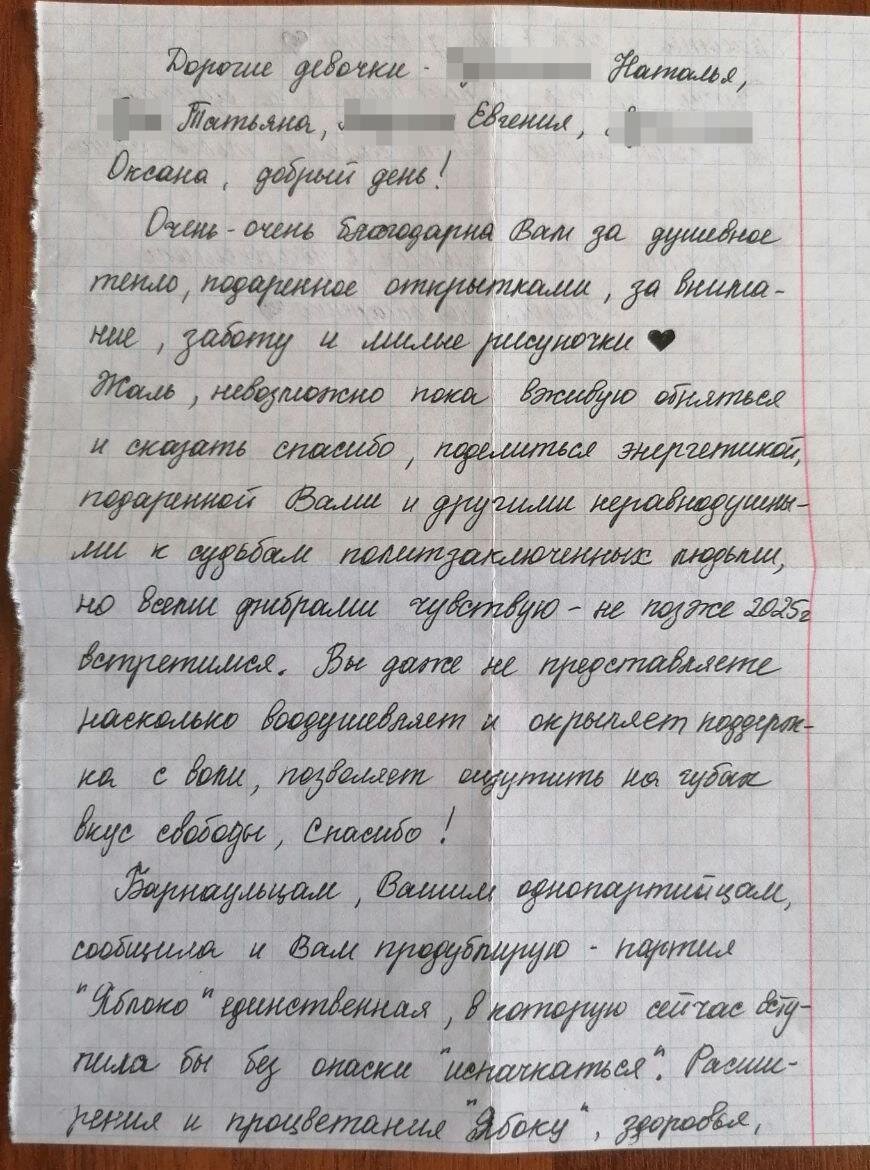 Дорогие девочки - Наталья,
Татьяна, Евгения,
Оксана, добрый день!
Очень-очень благодарна Вам за душевное
тепло, подаренное открытками, за внима-
ние, заботу и милые рисуночки ♥
Жаль, невозможно пока вживую обняться
и сказать спасибо, поделиться энергетикой,
подаренной Вами и другими неравнодушны-
ми к судьбам политзаключенных людьми,
но всеми фибрами чувствую - не позже 2025г
встретимся. Вы даже не представляете
насколько воодушевляет и окрыляет поддерж-
ка с воли, позволяет ощутить на губах
вкус свободы, Спасибо!
Барнаульцам, Вашим однопартийцам,
сообщила и Вам продублирую - партия
"Яблоко" единственная, в которую сейчас всту-
пила бы без опаски "испачкаться". Расши-
рения и процветания "Ябоку", здоровья,